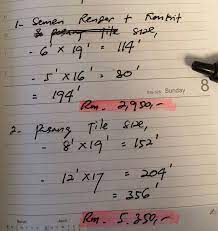 1- Semen Render + Konkrit
& pasang Tile size,
- 6' x 19' = 114'
- 5' x 16' = 80'
= 194'
Rm. 2,950,-
Sunday 8
2- pasang Tile size,
- 8' x 19' = 152'
- 12' x 17 = 204'
= 356'
Rm. 5,350,-